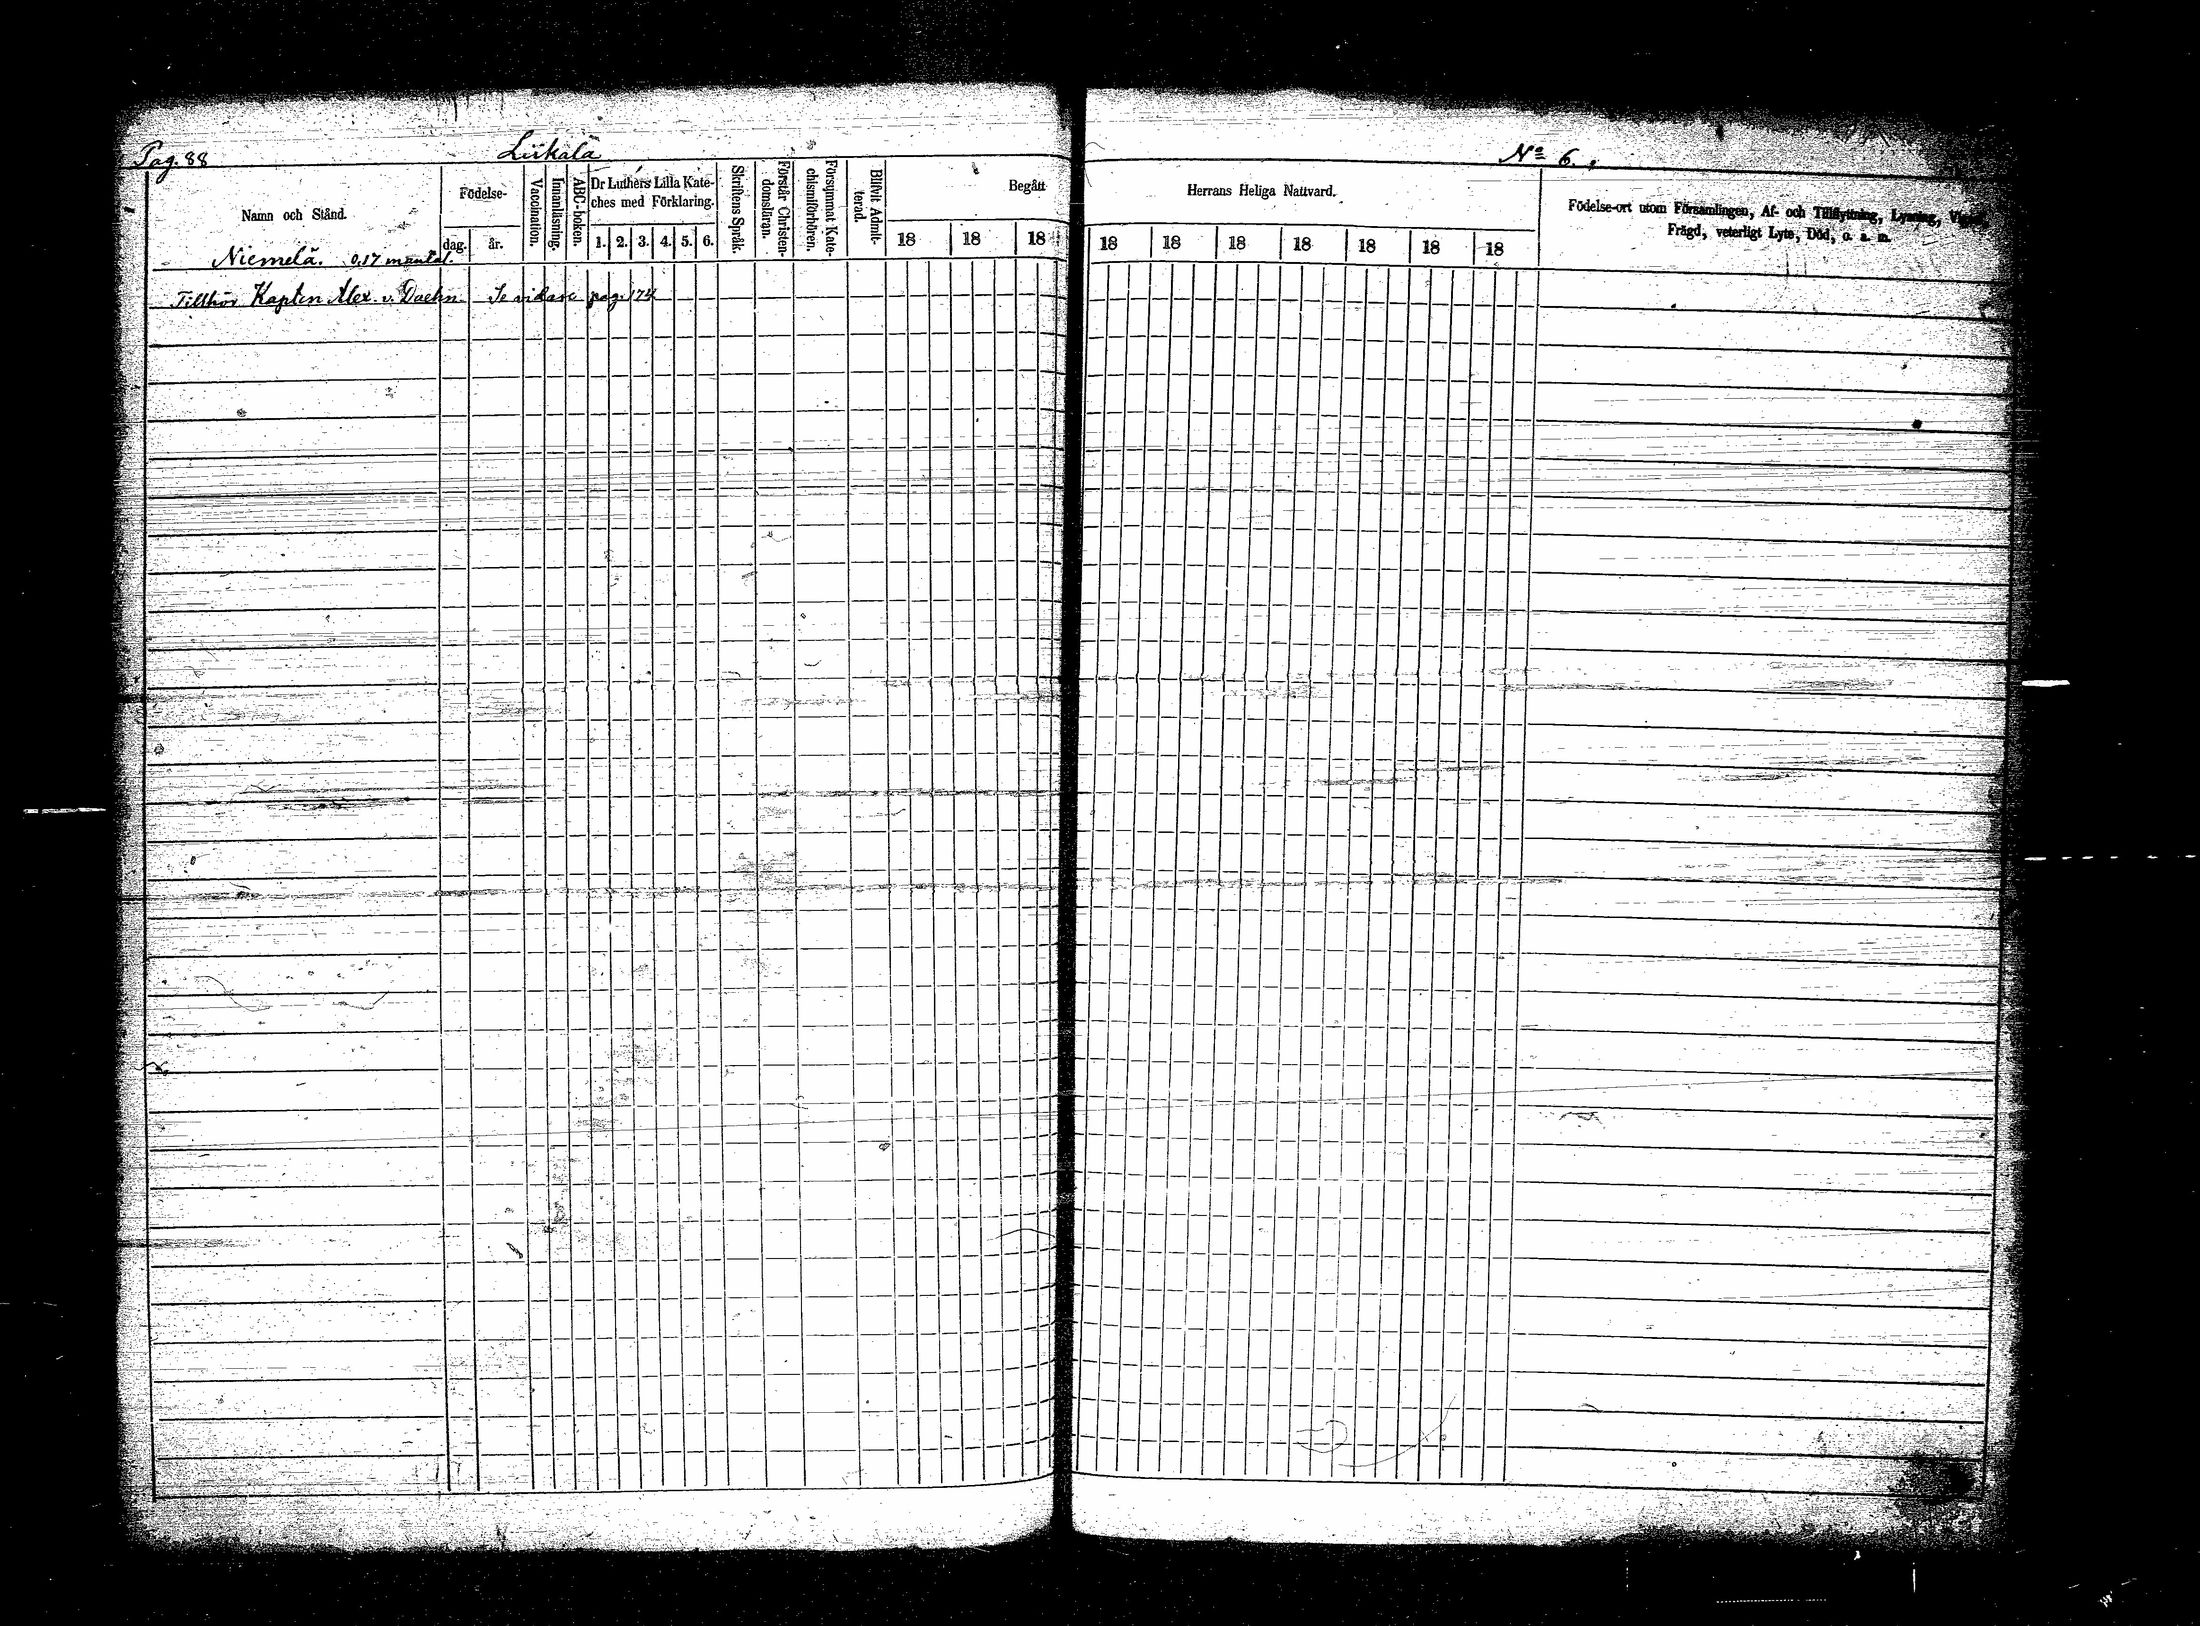 Pag. 88
Liikala
No 6.
Namn och Stånd.
Födelse-
dag.
år.
Vaccination.
Innanläsning.
ABC-boken.
Dr Luthers Lilla Kate-
ches med Förklaring.
1. 2. 3. 4. 5. 6.
Skriftens Språk.
Förstår Christen-
domsläran.
Försummat Kate-
chismiförhören.
Blifvit Admit-
terad.
Begått
18 18 18
Herrans Heliga Nattvard.
18 18 18 18 18 18 18
Födelse-ort utom Församlingen, Af- och Tillflyttning, Lysning,
Frägd, veterligt Lyte, Död, o. a. m.
Niemelä. 0.17 mantal.
Tillhör Kapten Alex. v. Daehn. Se vidare pag. 174